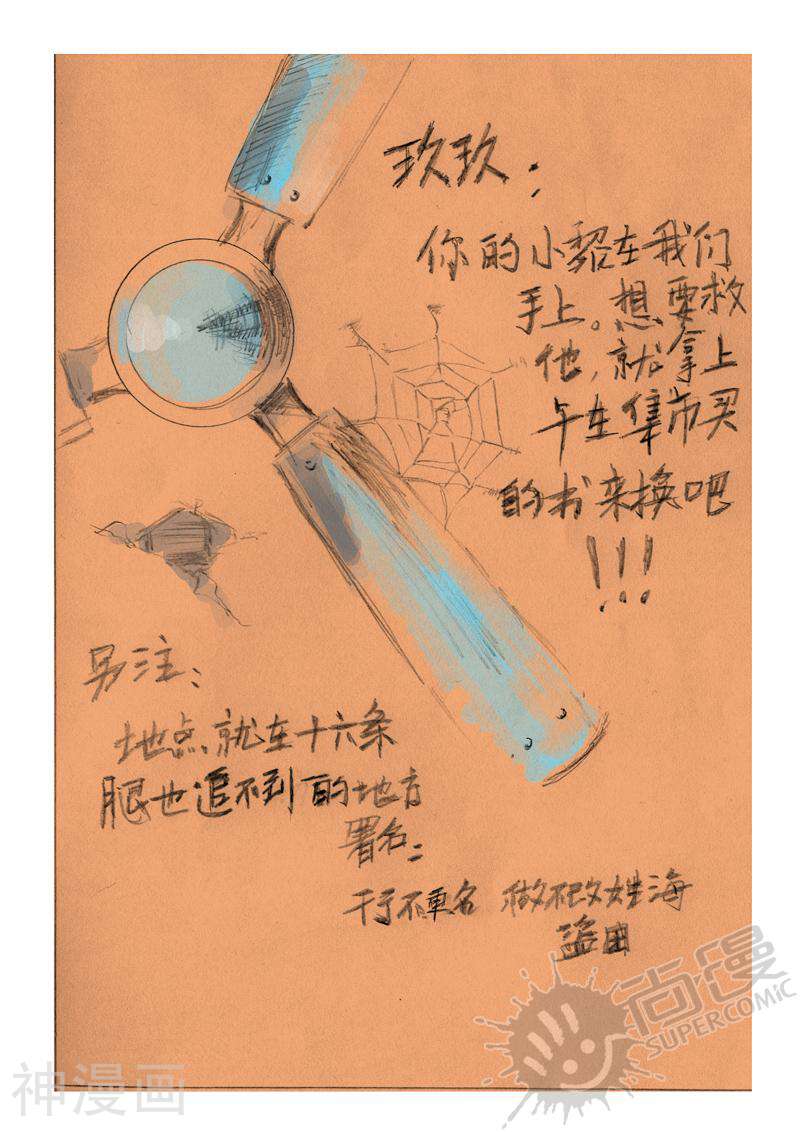 玖玖：
你的小貂在我们
手上。想要救
他，就拿上
午在集市买
的书来换吧
！！！
另注：
地点就在十六条
腿也追不到的地方
署名：
行不更名 做不改姓海
盗団
尚漫
SUPERCOMIC
神漫画